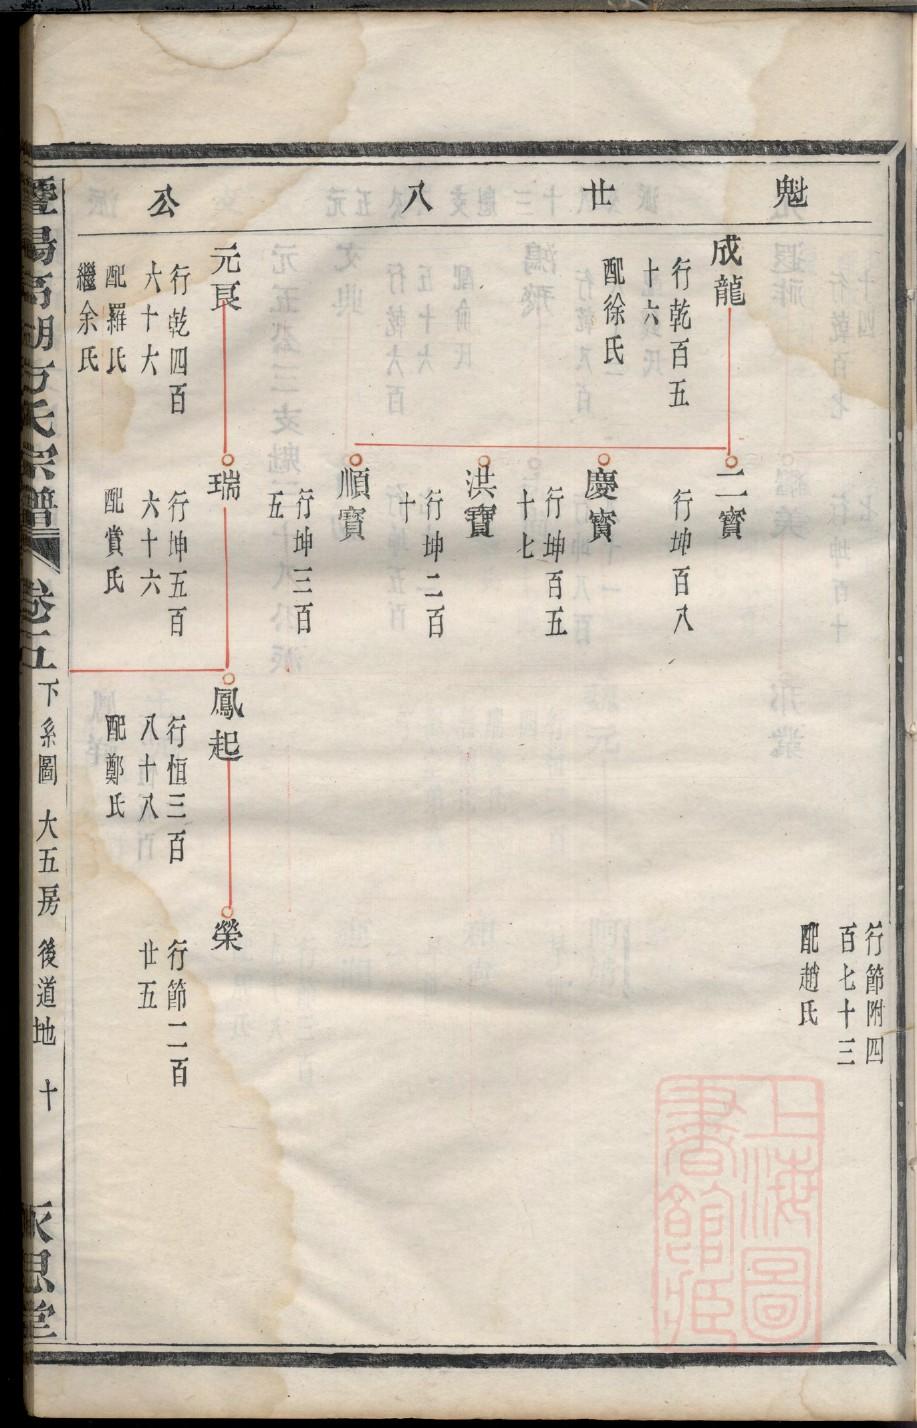 魁廿八公
成龍
行乾百五
十六
配徐氏
二寳
行坤百八
慶寳
行坤百五
十七
洪寳
行坤二百
十
順寳
行坤三百
五
行節附四
百七十三
配趙氏
元良
行乾四百
六十六
配羅氏
繼余氏
瑞
行坤五百
六十六
配賞氏
鳳起
行恒三百
八十八
配鄭氏
榮
行節二百
廿五
暨陽高湖方氏宗譜 卷二五 下系圖 大五房 後道地 十 永思堂
上海圖
書館藏